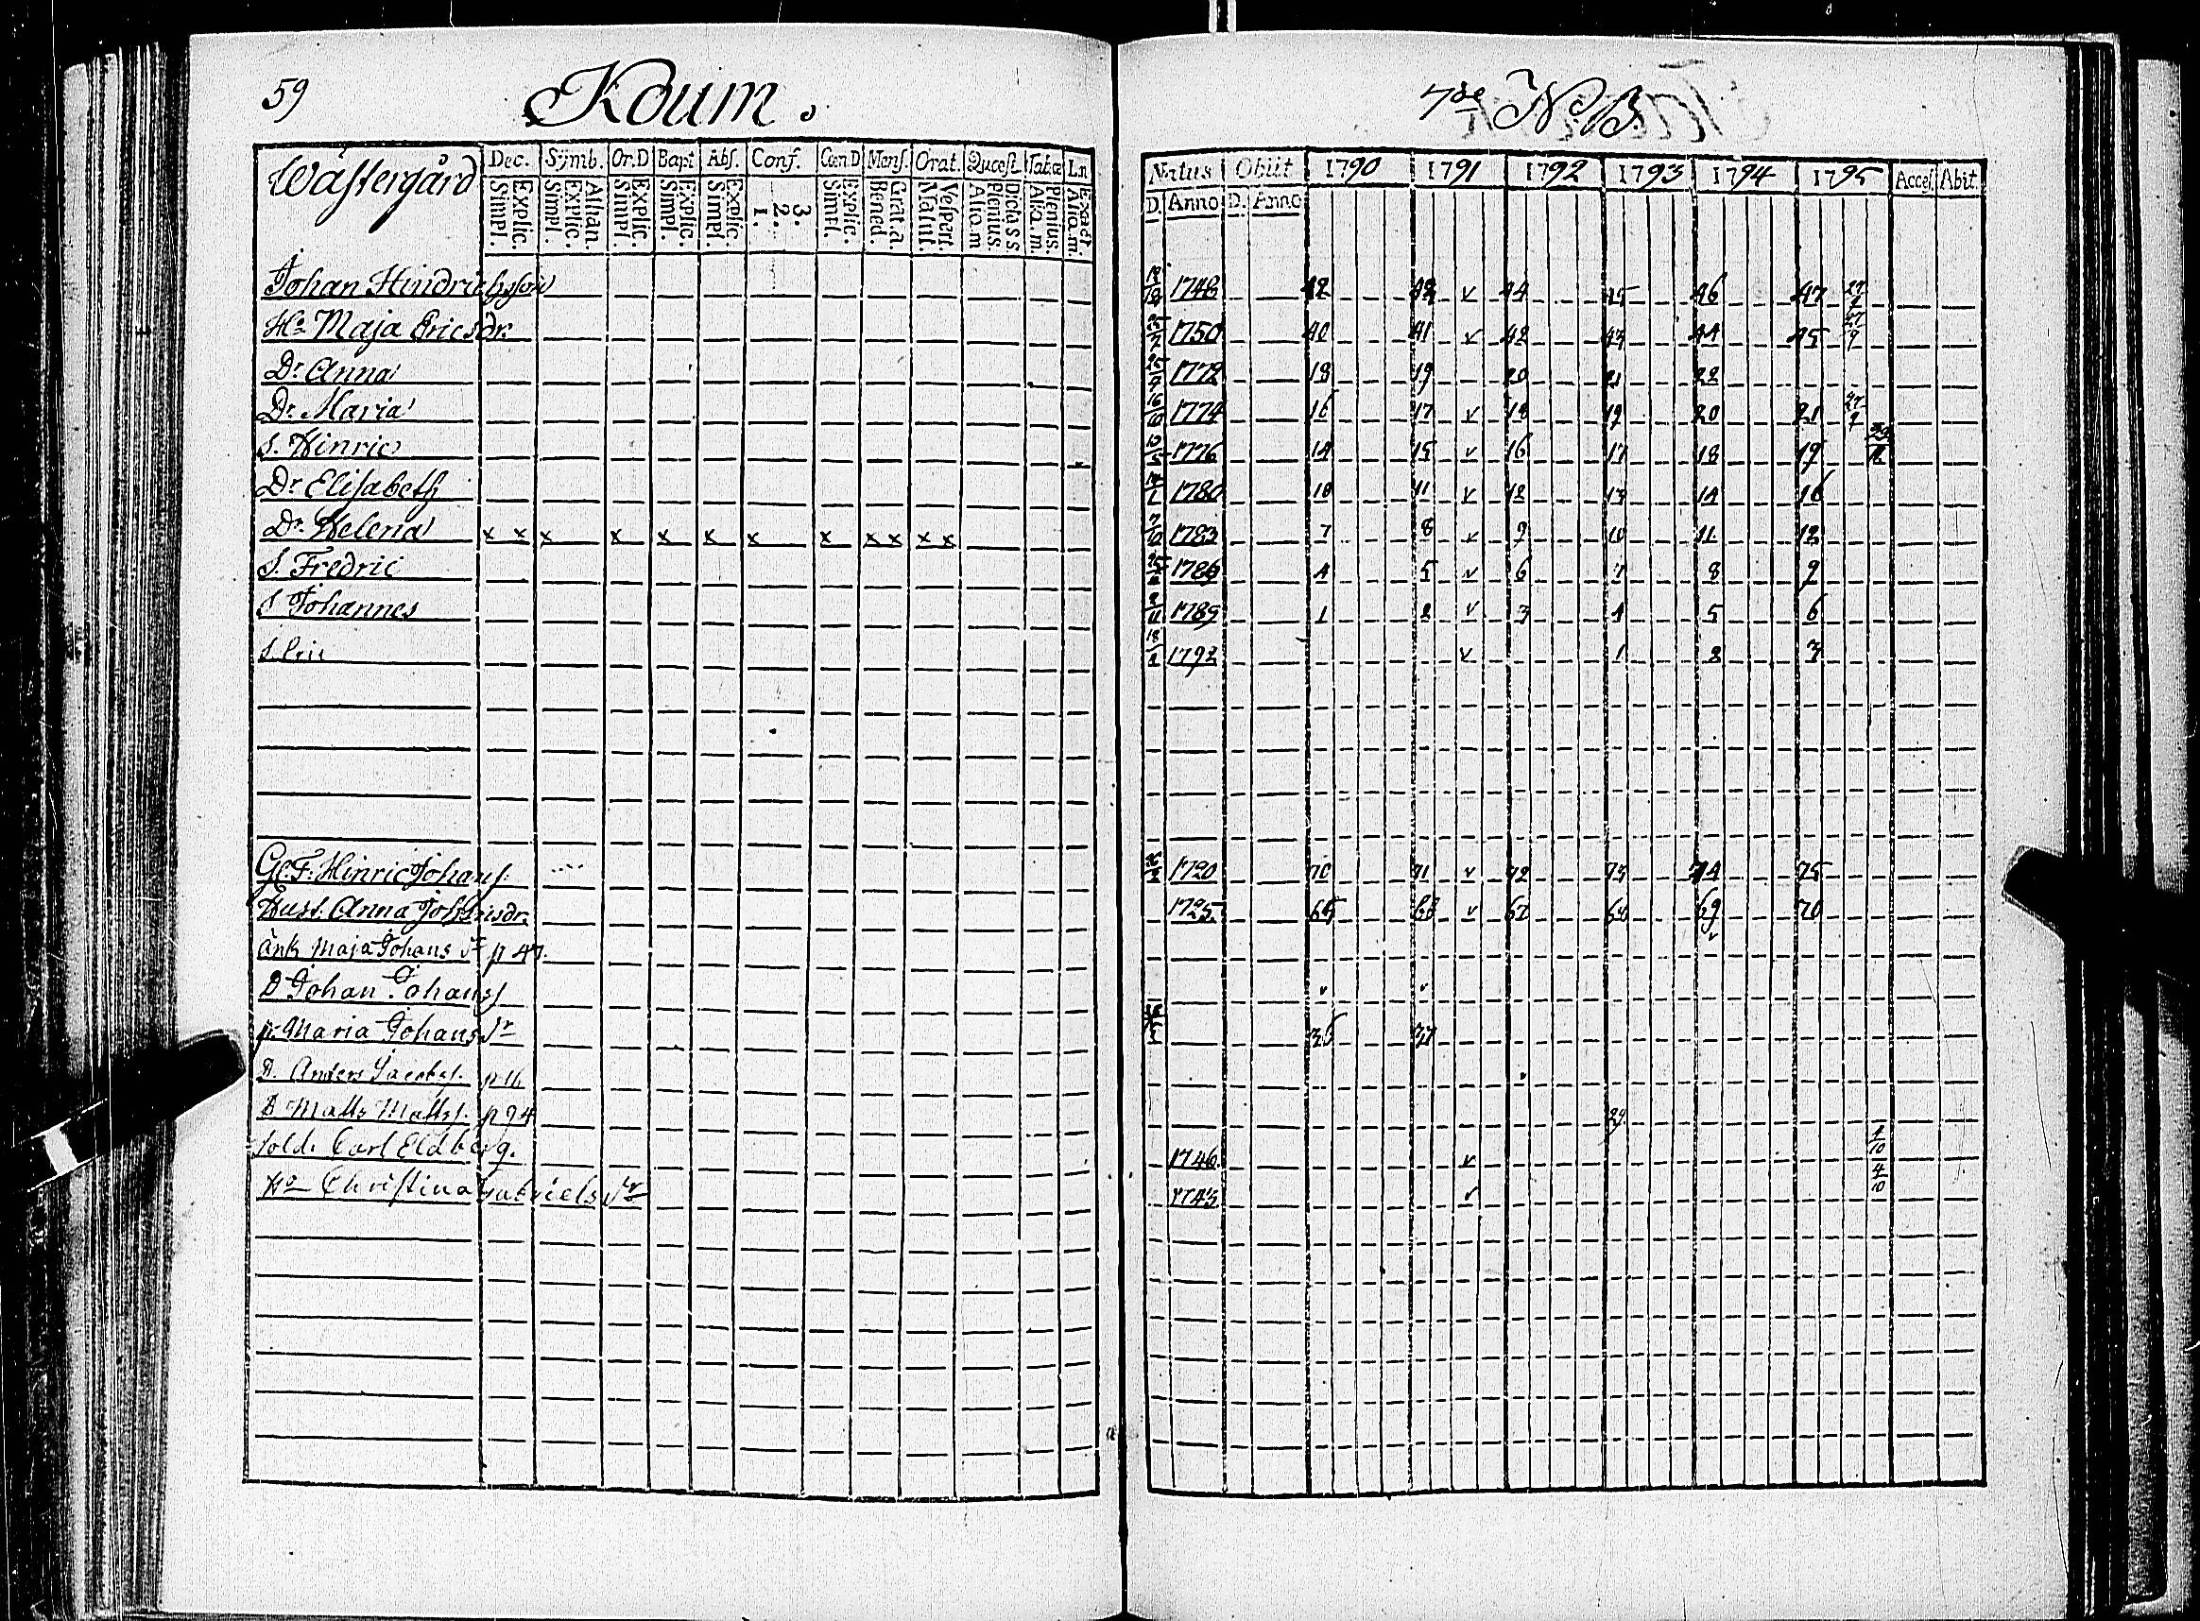 59
Koum.
7de No. 3.
Wästergård Dec. Symb. Or.D Bapt Abs. Conf. Cœn D Mens. Orat. Quæst. Tabæ Ln
Simpl. Explic. Simpl. Explic. Athan. Simpl. Explic. Simpl. Explic. Simpl. Explic. 1. 2. 3. Simpl. Explic. Bened. Grat.a. Matut. Vespert. Aliq.m Plenius. Dicta s s. Aliq.m. Plenius. Aliq.m. Exact
Natus Obiit 1790 1791 1792 1793 1794 1795 Acces. Abit.
D. Anno D. Anno
Johan Hindricsson 1748 42 44 45 46 47 27
Ho Maja Ericsdr. 1750 40 41 v 42 43 44 45 27/9
Dr. Anna 25/7 1772 18 19 20 21 22
Dr. Maria 16/10 1774 16 17 v 18 19 20 21
S. Hinric 1776 14 15 v 16 17 18 19
Dr Elisabeth 1780 10 11 v 12 13 14 16
Dr. Helena x x x x x x x x x x x x 7/10 1783 7 8 v 9 10 11 12
S. Fredric 1786 4 5 v 6 7 8 9
S Johannes 2/11 1789 1 2 v 3 4 5 6
S. Eric 18/2 1792 v 1 2 3
Gl. F. Hinric Johans. 1720 70 71 v 72 73 74 75
Hust. Anna 1725 65 66 v 67 68 69 70
Änk Maja Johans dr p 47. v
D Johan Johanss v v
p. Maria Johans dr 36 37
D. Anders Jacobs. p 16
D Matts Matts. p 94 29
Sold. Carl Eldberg. 1746 v 4/10
Ho Christina Gabriels dr 1743 v 4/10